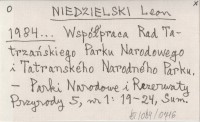 O
x
NIEDZIELSKI Leon
1984... Współpraca Rad Ta-
trzańskiego Parku Narodowego
i Tatranského Narodného Parku.
- Parki Narodowe i Rezerwaty
Przyrody 5, nr 1: 19-24, Sum.